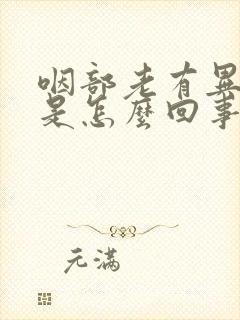 咽部老有異
是怎麼回事
元满